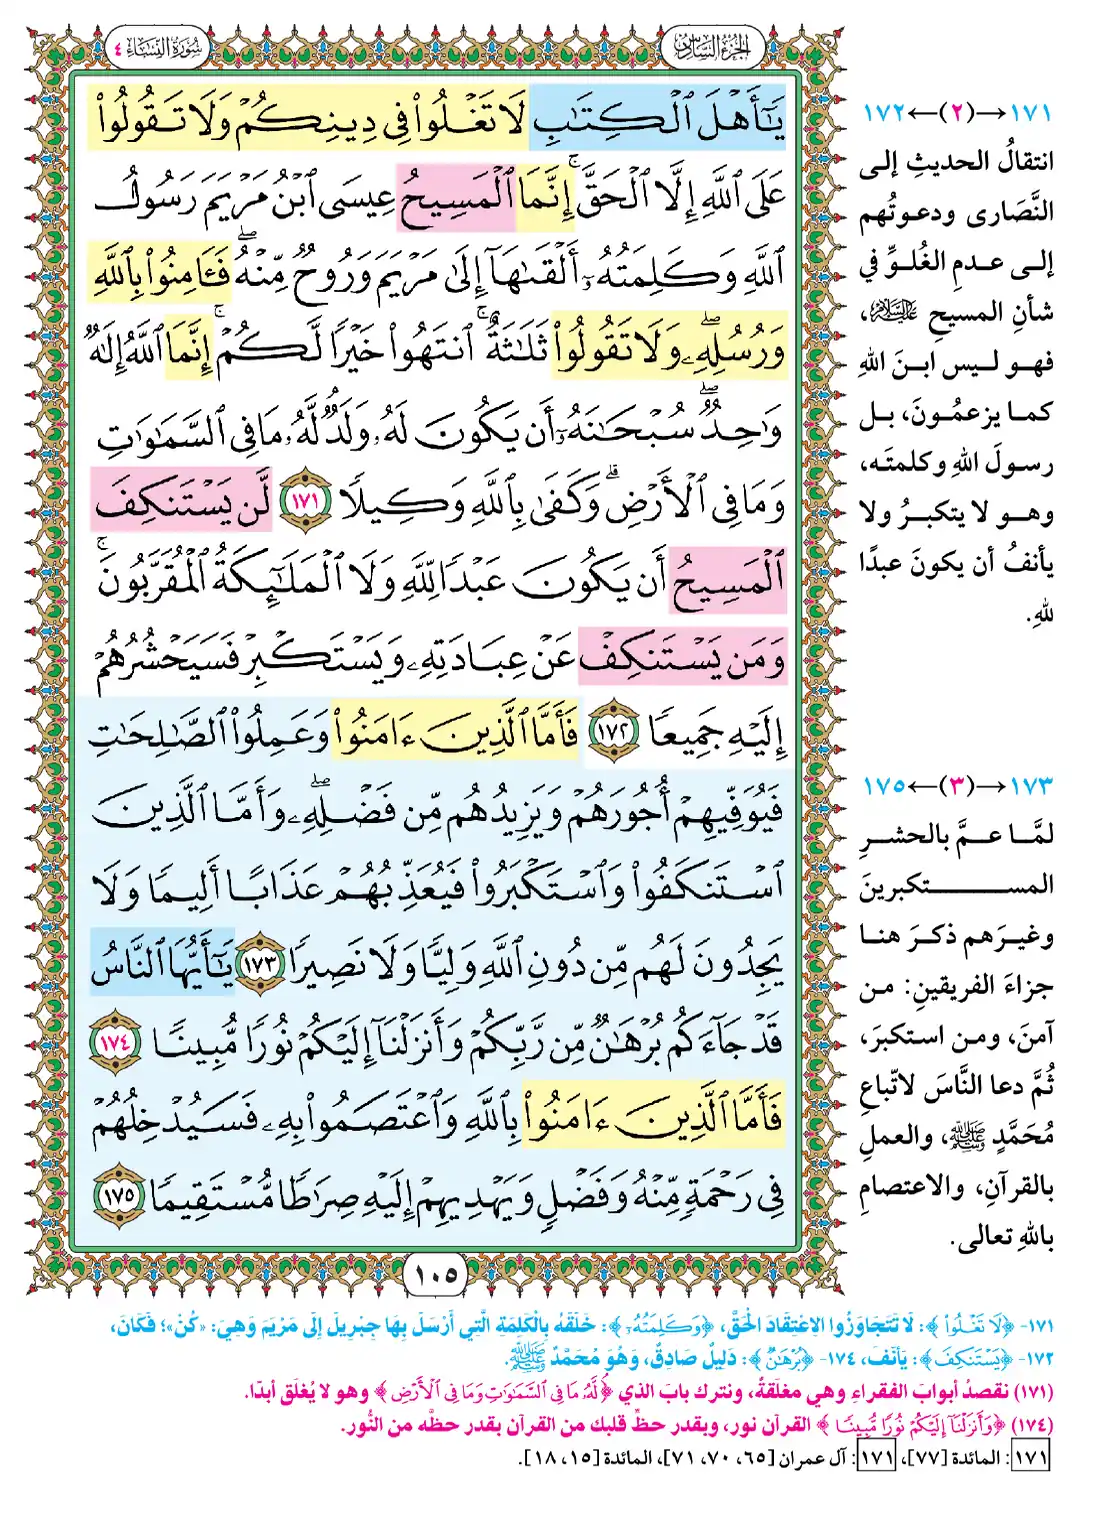 الجزء السادس
سورة النساء ٤
يَٰٓأَهۡلَ ٱلۡكِتَٰبِ لَا تَغۡلُواْ فِي دِينِكُمۡ وَلَا تَقُولُواْ
عَلَى ٱللَّهِ إِلَّا ٱلۡحَقَّۚ إِنَّمَا ٱلۡمَسِيحُ عِيسَى ٱبۡنُ مَرۡيَمَ رَسُولُ
ٱللَّهِ وَكَلِمَتُهُۥٓ أَلۡقَىٰهَآ إِلَىٰ مَرۡيَمَ وَرُوحٞ مِّنۡهُۖ فَـَٔامِنُواْ بِٱللَّهِ
وَرُسُلِهِۦۖ وَلَا تَقُولُواْ ثَلَٰثَةٌۚ ٱنتَهُواْ خَيۡرٗا لَّكُمۡۚ إِنَّمَا ٱللَّهُ إِلَٰهٞ
وَٰحِدٞۖ سُبۡحَٰنَهُۥٓ أَن يَكُونَ لَهُۥ وَلَدٞۘ لَّهُۥ مَا فِي ٱلسَّمَٰوَٰتِ
وَمَا فِي ٱلۡأَرۡضِۗ وَكَفَىٰ بِٱللَّهِ وَكِيلٗا ١٧١ لَّن يَسۡتَنكِفَ
ٱلۡمَسِيحُ أَن يَكُونَ عَبۡدٗا لِّلَّهِ وَلَا ٱلۡمَلَٰٓئِكَةُ ٱلۡمُقَرَّبُونَۚ
وَمَن يَسۡتَنكِفۡ عَنۡ عِبَادَتِهِۦ وَيَسۡتَكۡبِرۡ فَسَيَحۡشُرُهُمۡ
إِلَيۡهِ جَمِيعٗا ١٧٢ فَأَمَّا ٱلَّذِينَ ءَامَنُواْ وَعَمِلُواْ ٱلصَّٰلِحَٰتِ
فَيُوَفِّيهِمۡ أُجُورَهُمۡ وَيَزِيدُهُم مِّن فَضۡلِهِۦۖ وَأَمَّا ٱلَّذِينَ
ٱسۡتَنكَفُواْ وَٱسۡتَكۡبَرُواْ فَيُعَذِّبُهُمۡ عَذَابًا أَلِيمٗا وَلَا
يَجِدُونَ لَهُم مِّن دُونِ ٱللَّهِ وَلِيّٗا وَلَا نَصِيرٗا ١٧٣ يَٰٓأَيُّهَا ٱلنَّاسُ
قَدۡ جَآءَكُم بُرۡهَٰنٞ مِّن رَّبِّكُمۡ وَأَنزَلۡنَآ إِلَيۡكُمۡ نُورٗا مُّبِينٗا ١٧٤
فَأَمَّا ٱلَّذِينَ ءَامَنُواْ بِٱللَّهِ وَٱعۡتَصَمُواْ بِهِۦ فَسَيُدۡخِلُهُمۡ
فِي رَحۡمَةٖ مِّنۡهُ وَفَضۡلٖ وَيَهۡدِيهِمۡ إِلَيۡهِ صِرَٰطٗا مُّسۡتَقِيمٗا ١٧٥
١٠٥
١٧١→(٢)←١٧٢
انتقالُ الحديثِ إلى
النَّصَارى ودعوتُهم
إلى عدمِ الغُلوِّ في
شأنِ المسيحِ عليه السلام،
فهو ليس ابنَ اللهِ
كما يزعمُونَ، بل
رسولَ اللهِ وكلمتَه،
وهو لا يتكبرُ ولا
يأنفُ أن يكونَ عبدًا
للهِ.
١٧٣→(٣)←١٧٥
لمَّا عمَّ بالحشرِ
المستكبرينَ
وغيرَهم ذكرَ هنا
جزاءَ الفريقينِ: من
آمنَ، ومن استكبرَ،
ثُمَّ دعا النَّاسَ لاتّباعِ
مُحَمَّدٍ ﷺ، والعملِ
بالقرآنِ، والاعتصامِ
باللهِ تعالى.
١٧١- ﴿لَا تَغۡلُواْ﴾: لَا تَتَجَاوَزُوا الِاعْتِقَادَ الْحَقَّ، ﴿وَكَلِمَتُهُۥٓ﴾: خَلَقَهُ بِالْكَلِمَةِ الَّتِي أَرْسَلَ بِهَا جِبْرِيلَ إِلَى مَرْيَمَ وَهِيَ: «كُنْ»؛ فَكَانَ،
١٧٢- ﴿يَسۡتَنكِفَ﴾: يَأْنَفَ، ١٧٤- ﴿بُرۡهَٰنٞ﴾: دَلِيلٌ صَادِقٌ، وَهُوَ مُحَمَّدٌ ﷺ.
(١٧١) نقصدُ أبوابَ الفقراءِ وهي مغلقةٌ، ونترك بابَ الذي ﴿لَّهُۥ مَا فِي ٱلسَّمَٰوَٰتِ وَمَا فِي ٱلۡأَرۡضِ﴾ وهو لا يُغلَق أبدًا.
(١٧٤) ﴿وَأَنزَلۡنَآ إِلَيۡكُمۡ نُورٗا مُّبِينٗا﴾ القرآن نور، وبقدر حظِّ قلبك من القرآن بقدر حظّه من النُّور.
١٧١: المائدة [٧٧]، ١٧١: آل عمران [٦٥، ٧٠، ٧١]، المائدة [١٥، ١٨].